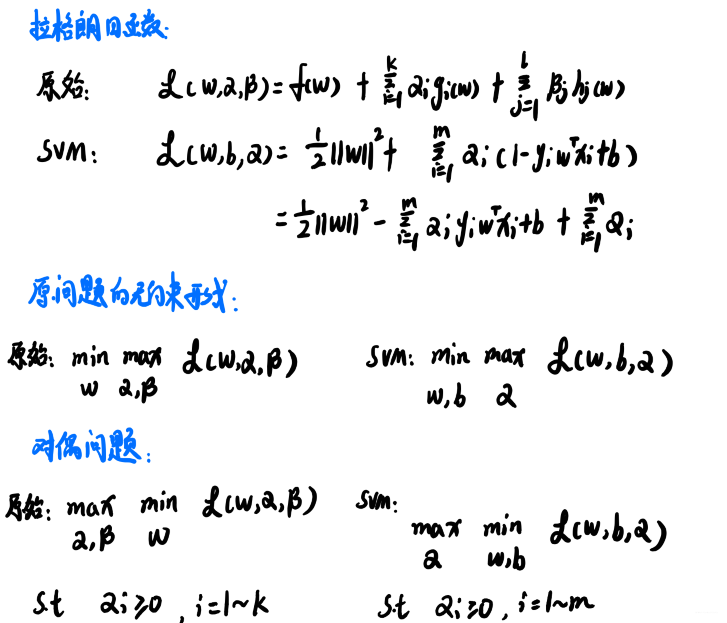 拉格朗日函数:
原始: L(w,α,β)=f(w) + Σ_{i=1}^{k} αi gi(w) + Σ_{j=1}^{l} βj hj(w)
SVM: L(w,b,α)= 1/2||w||² + Σ_{i=1}^{m} αi (1-yi wᵀxi+b)
= 1/2||w||² - Σ_{i=1}^{m} αi yi wᵀxi+b + Σ_{i=1}^{m} αi
原问题的无约束形式:
原始: min max L(w,α,β) SVM: min max L(w,b,α)
w α,β w,b α
对偶问题:
原始: max min L(w,α,β) SVM: max min L(w,b,α)
α,β w α w,b
s.t αi≥0 , i=1~k s.t αi≥0 , i=1~m